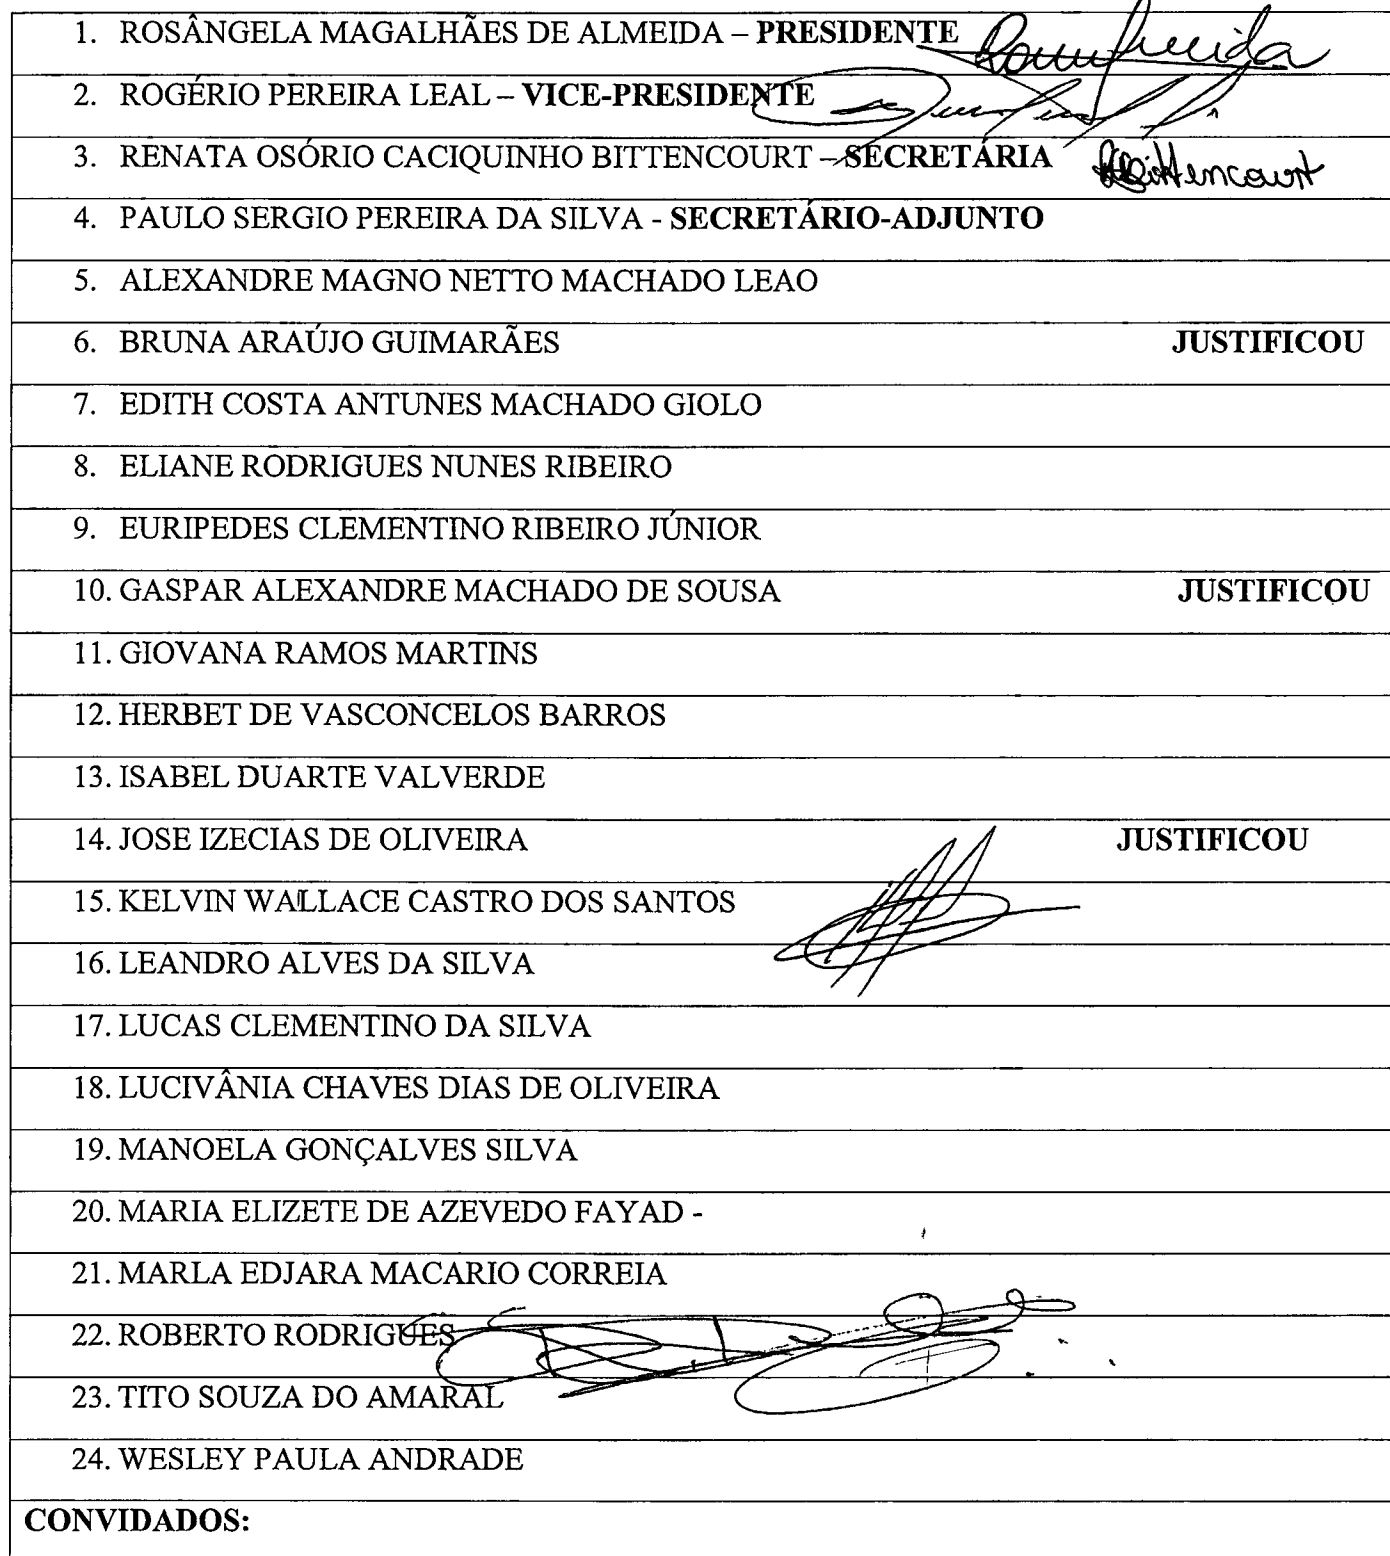 1. ROSÂNGELA MAGALHÃES DE ALMEIDA – PRESIDENTE
2. ROGÉRIO PEREIRA LEAL – VICE-PRESIDENTE
3. RENATA OSÓRIO CACIQUINHO BITTENCOURT – SECRETÁRIA Bittencourt
4. PAULO SERGIO PEREIRA DA SILVA - SECRETÁRIO-ADJUNTO
5. ALEXANDRE MAGNO NETTO MACHADO LEAO
6. BRUNA ARAÚJO GUIMARÃES JUSTIFICOU
7. EDITH COSTA ANTUNES MACHADO GIOLO
8. ELIANE RODRIGUES NUNES RIBEIRO
9. EURIPEDES CLEMENTINO RIBEIRO JÚNIOR
10. GASPAR ALEXANDRE MACHADO DE SOUSA JUSTIFICOU
11. GIOVANA RAMOS MARTINS
12. HERBET DE VASCONCELOS BARROS
13. ISABEL DUARTE VALVERDE
14. JOSE IZECIAS DE OLIVEIRA JUSTIFICOU
15. KELVIN WALLACE CASTRO DOS SANTOS
16. LEANDRO ALVES DA SILVA
17. LUCAS CLEMENTINO DA SILVA
18. LUCIVÂNIA CHAVES DIAS DE OLIVEIRA
19. MANOELA GONÇALVES SILVA
20. MARIA ELIZETE DE AZEVEDO FAYAD -
21. MARLA EDJARA MACARIO CORREIA
22. ROBERTO RODRIGUES
23. TITO SOUZA DO AMARAL
24. WESLEY PAULA ANDRADE
CONVIDADOS: